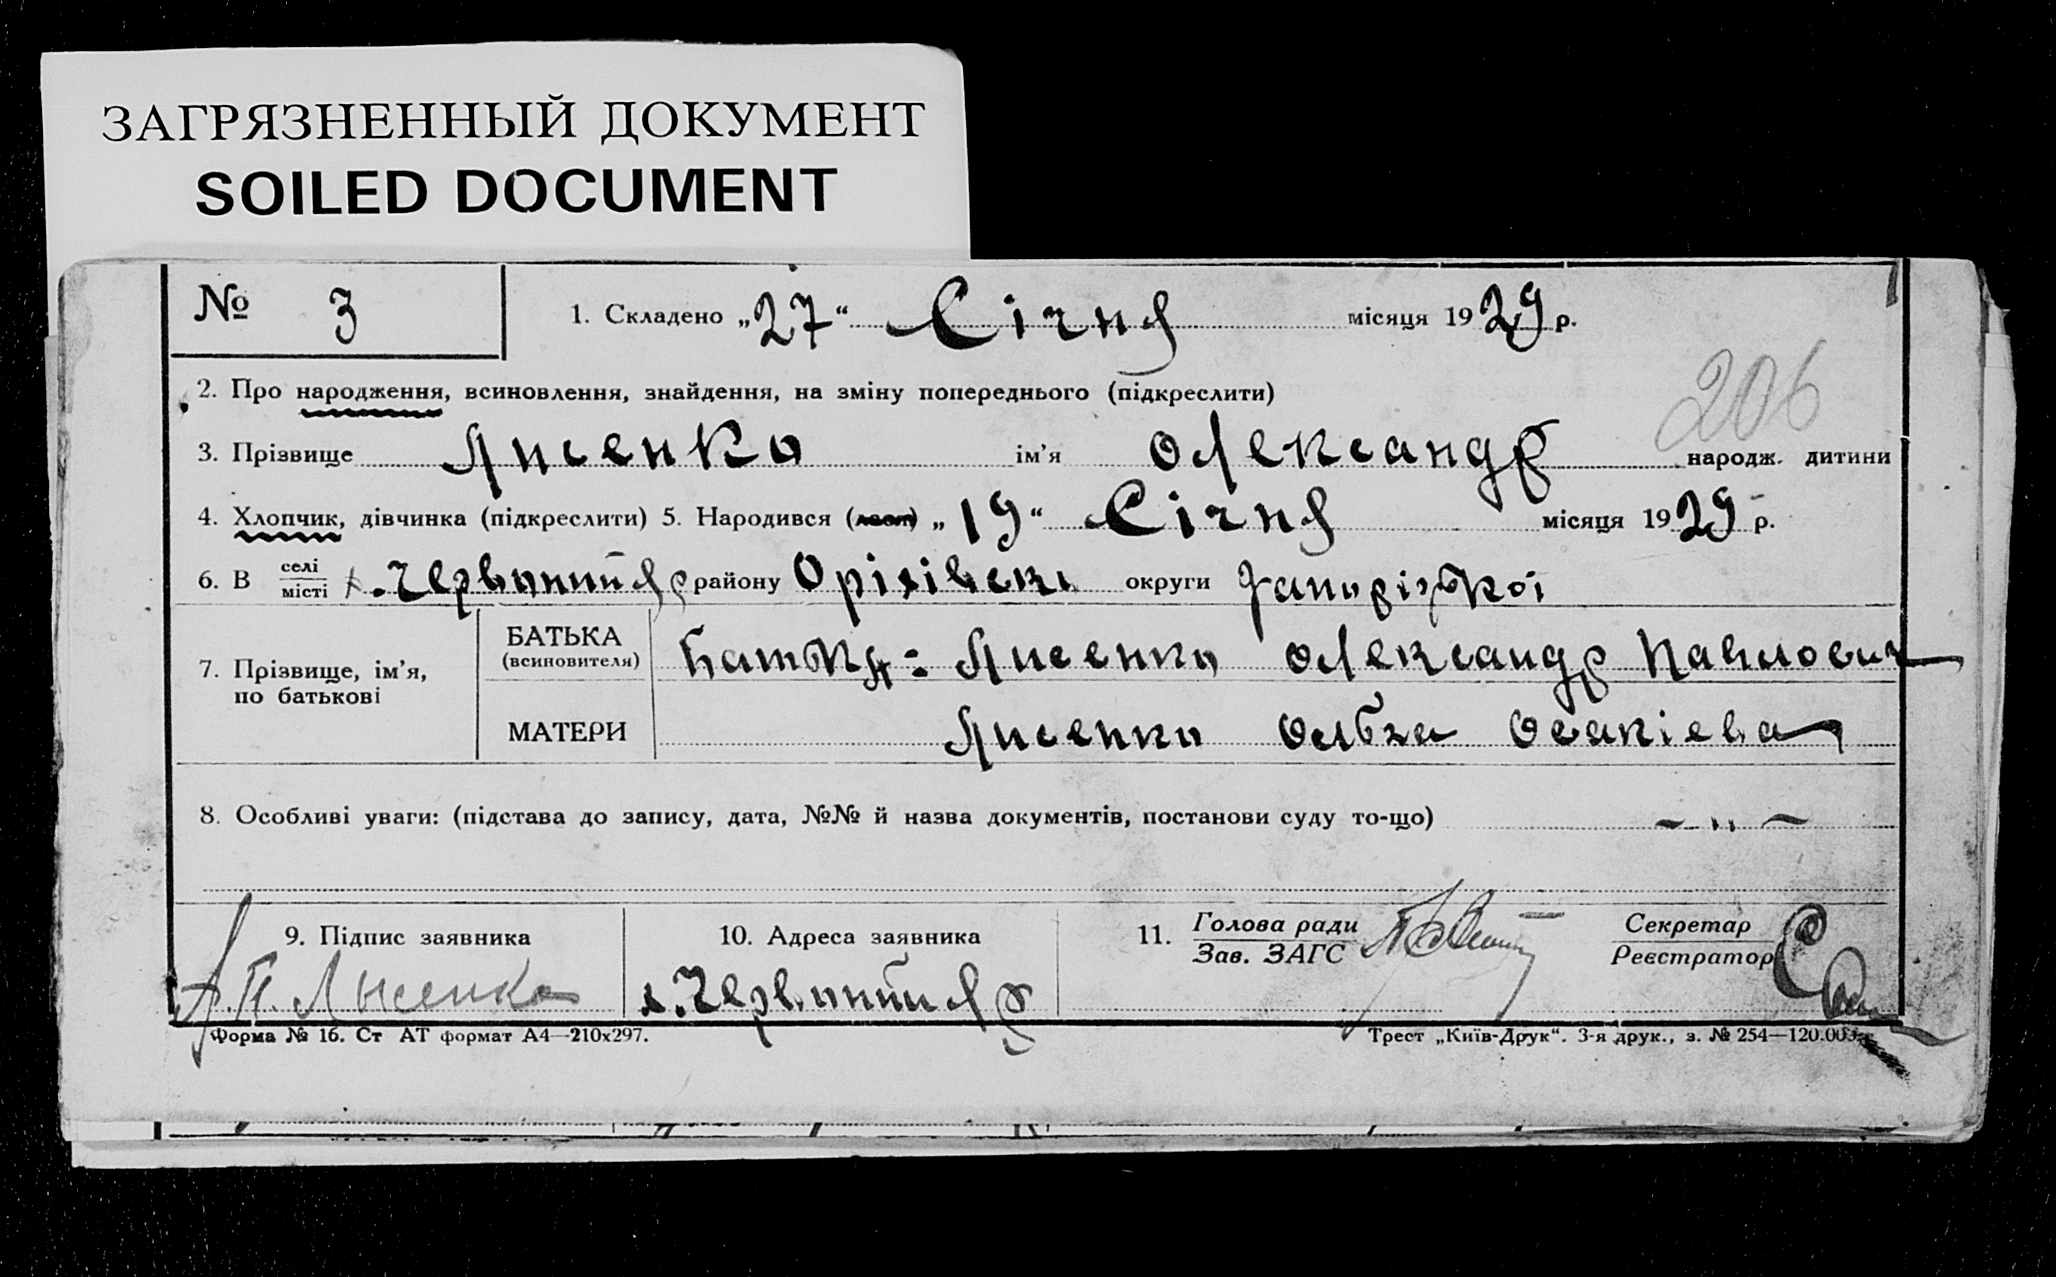 ЗАГРЯЗНЕННЫЙ ДОКУМЕНТ
SOILED DOCUMENT
№ 3
1. Складено „27“ Січня місяця 1929 р.
2. Про народження, всиновлення, знайдення, на зміну попереднього (підкреслити)
206
3. Прізвище Лисенко ім'я Олександр народж. дитини
4. Хлопчик, дівчинка (підкреслити) 5. Народився (лась) „19“ Січня місяця 1929 р.
6. В селі
місті х. Червоний Яр району Оріхівськ округи Запорізької
7. Прізвище, ім'я, по батькові
БАТЬКА (всиновителя) Батько: Лисенко Олександр Павлович
МАТЕРИ Лисенко Ольга
8. Особливі уваги: (підстава до запису, дата, №№ й назва документів, постанови суду то-що) — „ —
9. Підпис заявника
А. П. Лысенко
10. Адреса заявника
х. Червоний Яр
11. Голова ради
Зав. ЗАГС
Секретар
Реєстратор
Форма № 16. Ст АТ формат А4—210х297.
Трест „Київ-Друк“. 3-я друк., з. № 254—120.000